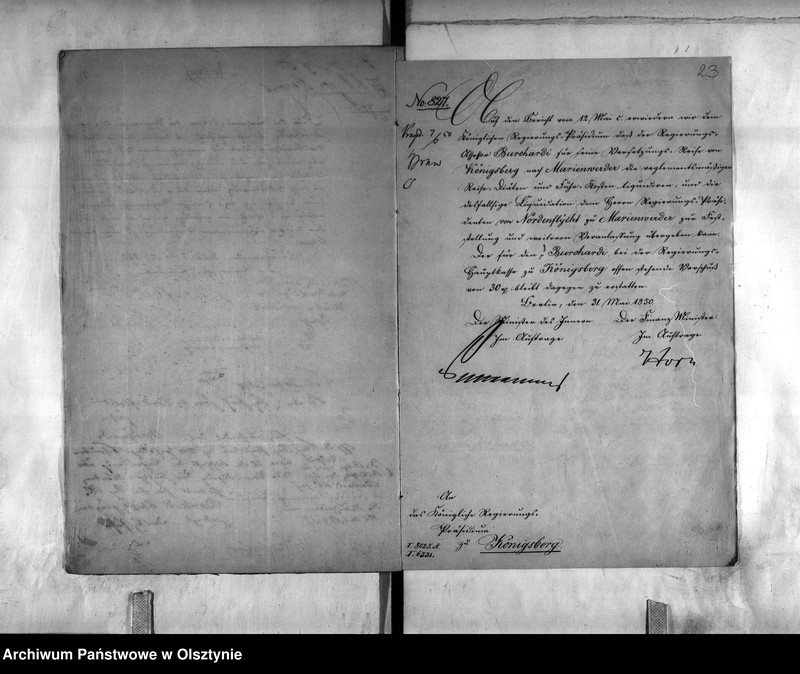 23
No. 827.
Auf den Bericht vom 12. Mai c. erwiedern wir dem
Königlichen Regierungs-Präsidium daß der Regierungs-
Assessor Burchardi für seine Versetzungs-Reise von
Königsberg nach Marienwerder die reglementsmäßigen
Reise-Diäten und Fuhr-Kosten liquidiren, und die
desfallsige Liquidation dem Herrn Regierungs-Präsi-
denten von Nordenflycht zu Marienwerder zur Fest-
stellung und weiteren Veranlassung übergeben kann.
Der für den Burchardi bei der Regierungs-
Hauptkasse zu Königsberg offen stehende Vorschuß
von 30 bleibt dagegen zu erstatten.
Berlin, den 31. Mai 1850.
Der Minister des Innern Der Finanz-Minister
Im Auftrage Im Auftrage
Horn
An
das Königliche Regierungs-
Präsidium
zu Königsberg.
I. 6221.
Archiwum Państwowe w Olsztynie